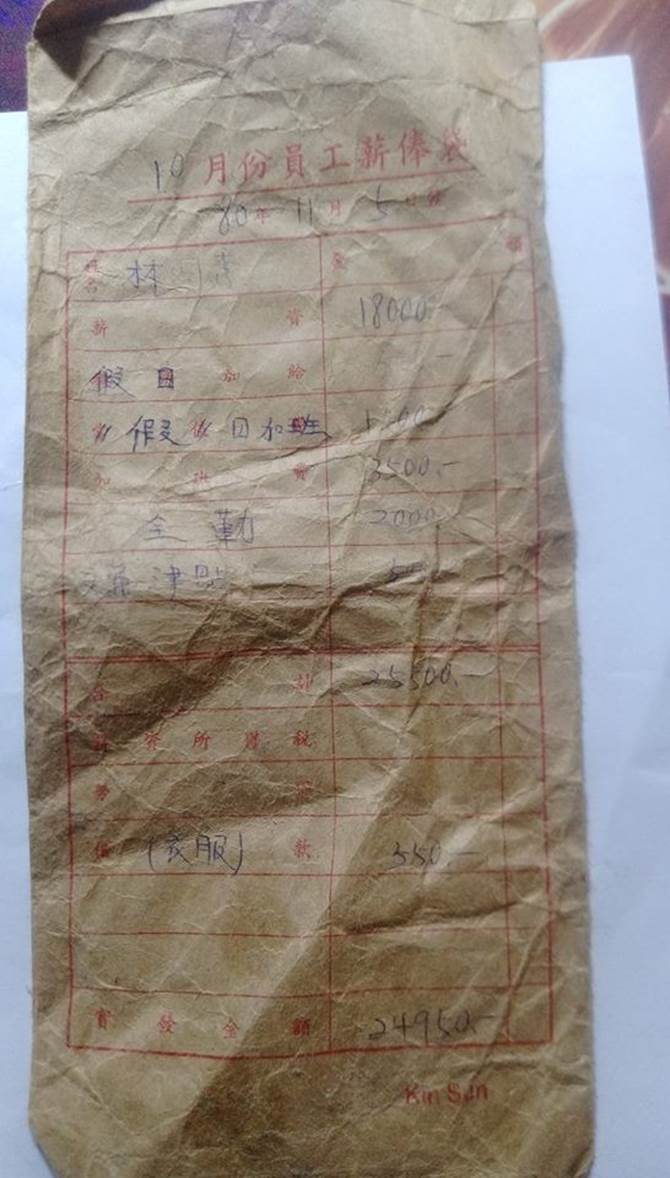 10 月份員工薪俸袋
80年 11月 5日
姓名 林
金 額
薪 資 18000.-
假日 加 給
假 日加班
加 班 費 3500.-
全勤 2000.-
津貼
合 計 25500.-
薪資所得稅
勞
借 (衣服) 款 550.-
實發金額 24950.-
Kin Sun